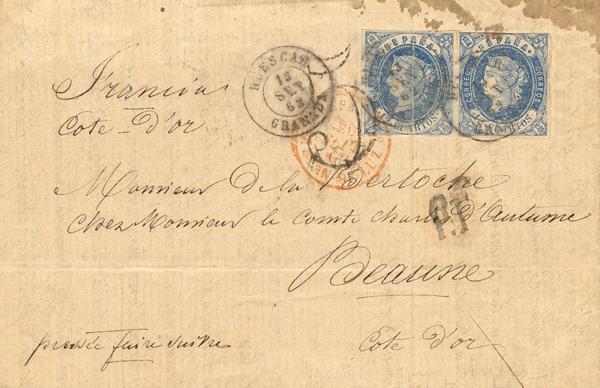 HUESCAR
13
SET
62
GRANADA
ESPAÑA
CORREOS
CUARTOS
ESPAÑA
CORREOS
CUARTOS
Francia
Cote-d'or
Monsieur de la Bertoche
chez Monsieur le Comte Charles d'Autume
Beaune
Cote d'or
pressée faire suivre
P.F.